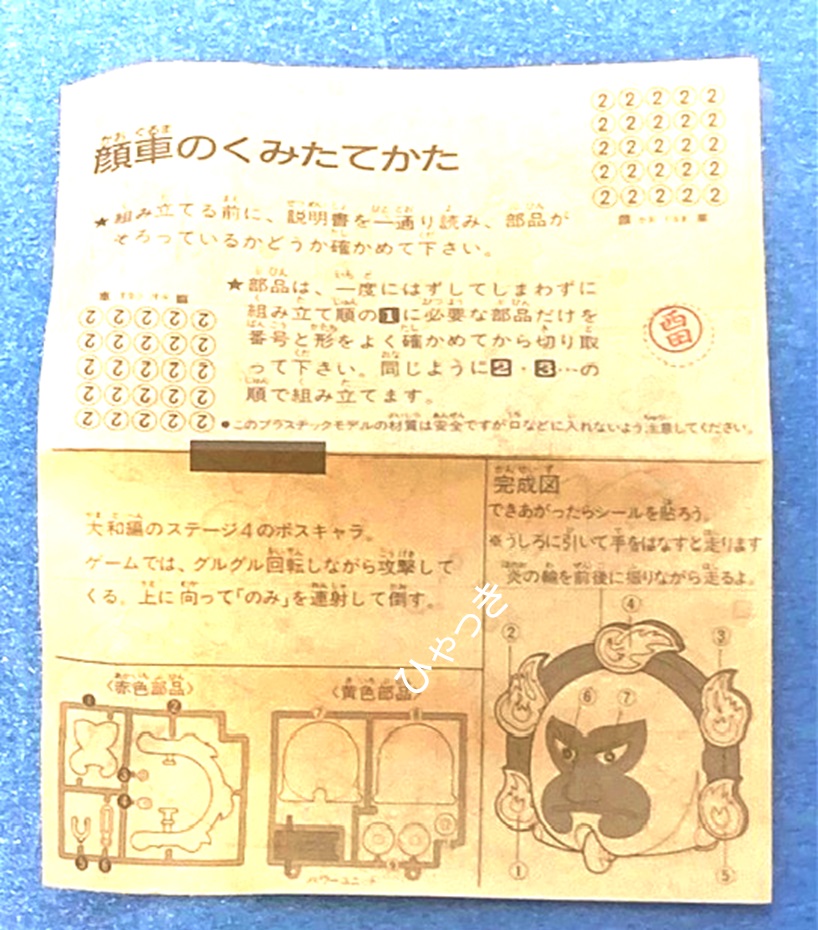 顔車のくみたてかた
かお ぐるま
2 2 2 2 2
2 2 2 2 2
2 2 2 2 2
2 2 2 2 2
2 2 2 2 2
★組み立てる前に、説明書を一通り読み、部品が
そろっているかどうか確かめて下さい。
★部品は、一度にはずしてしまわずに
組み立て順の1に必要な部品だけを
番号と形をよく確かめてから切り取
って下さい。同じように2・3…の
順で組み立てます。
2 2 2 2 2
2 2 2 2 2
2 2 2 2 2
2 2 2 2 2
2 2 2 2 2
西田
●このプラスチックモデルの材質は安全ですが口などに入れないよう注意してください。
大和編のステージ4のボスキャラ。
ゲームでは、グルグル回転しながら攻撃して
くる。上に向って「のみ」を連射して倒す。
完成図
かんせいず
できあがったらシールを貼ろう。
※うしろに引いて手をはなすと走ります
炎の輪を前後に振りながら走るよ。
ひゃつき
〈赤色部品〉
1 2
〈黄色部品〉
7
パワーユニット
④
② ③
⑥ ⑦
① ⑤